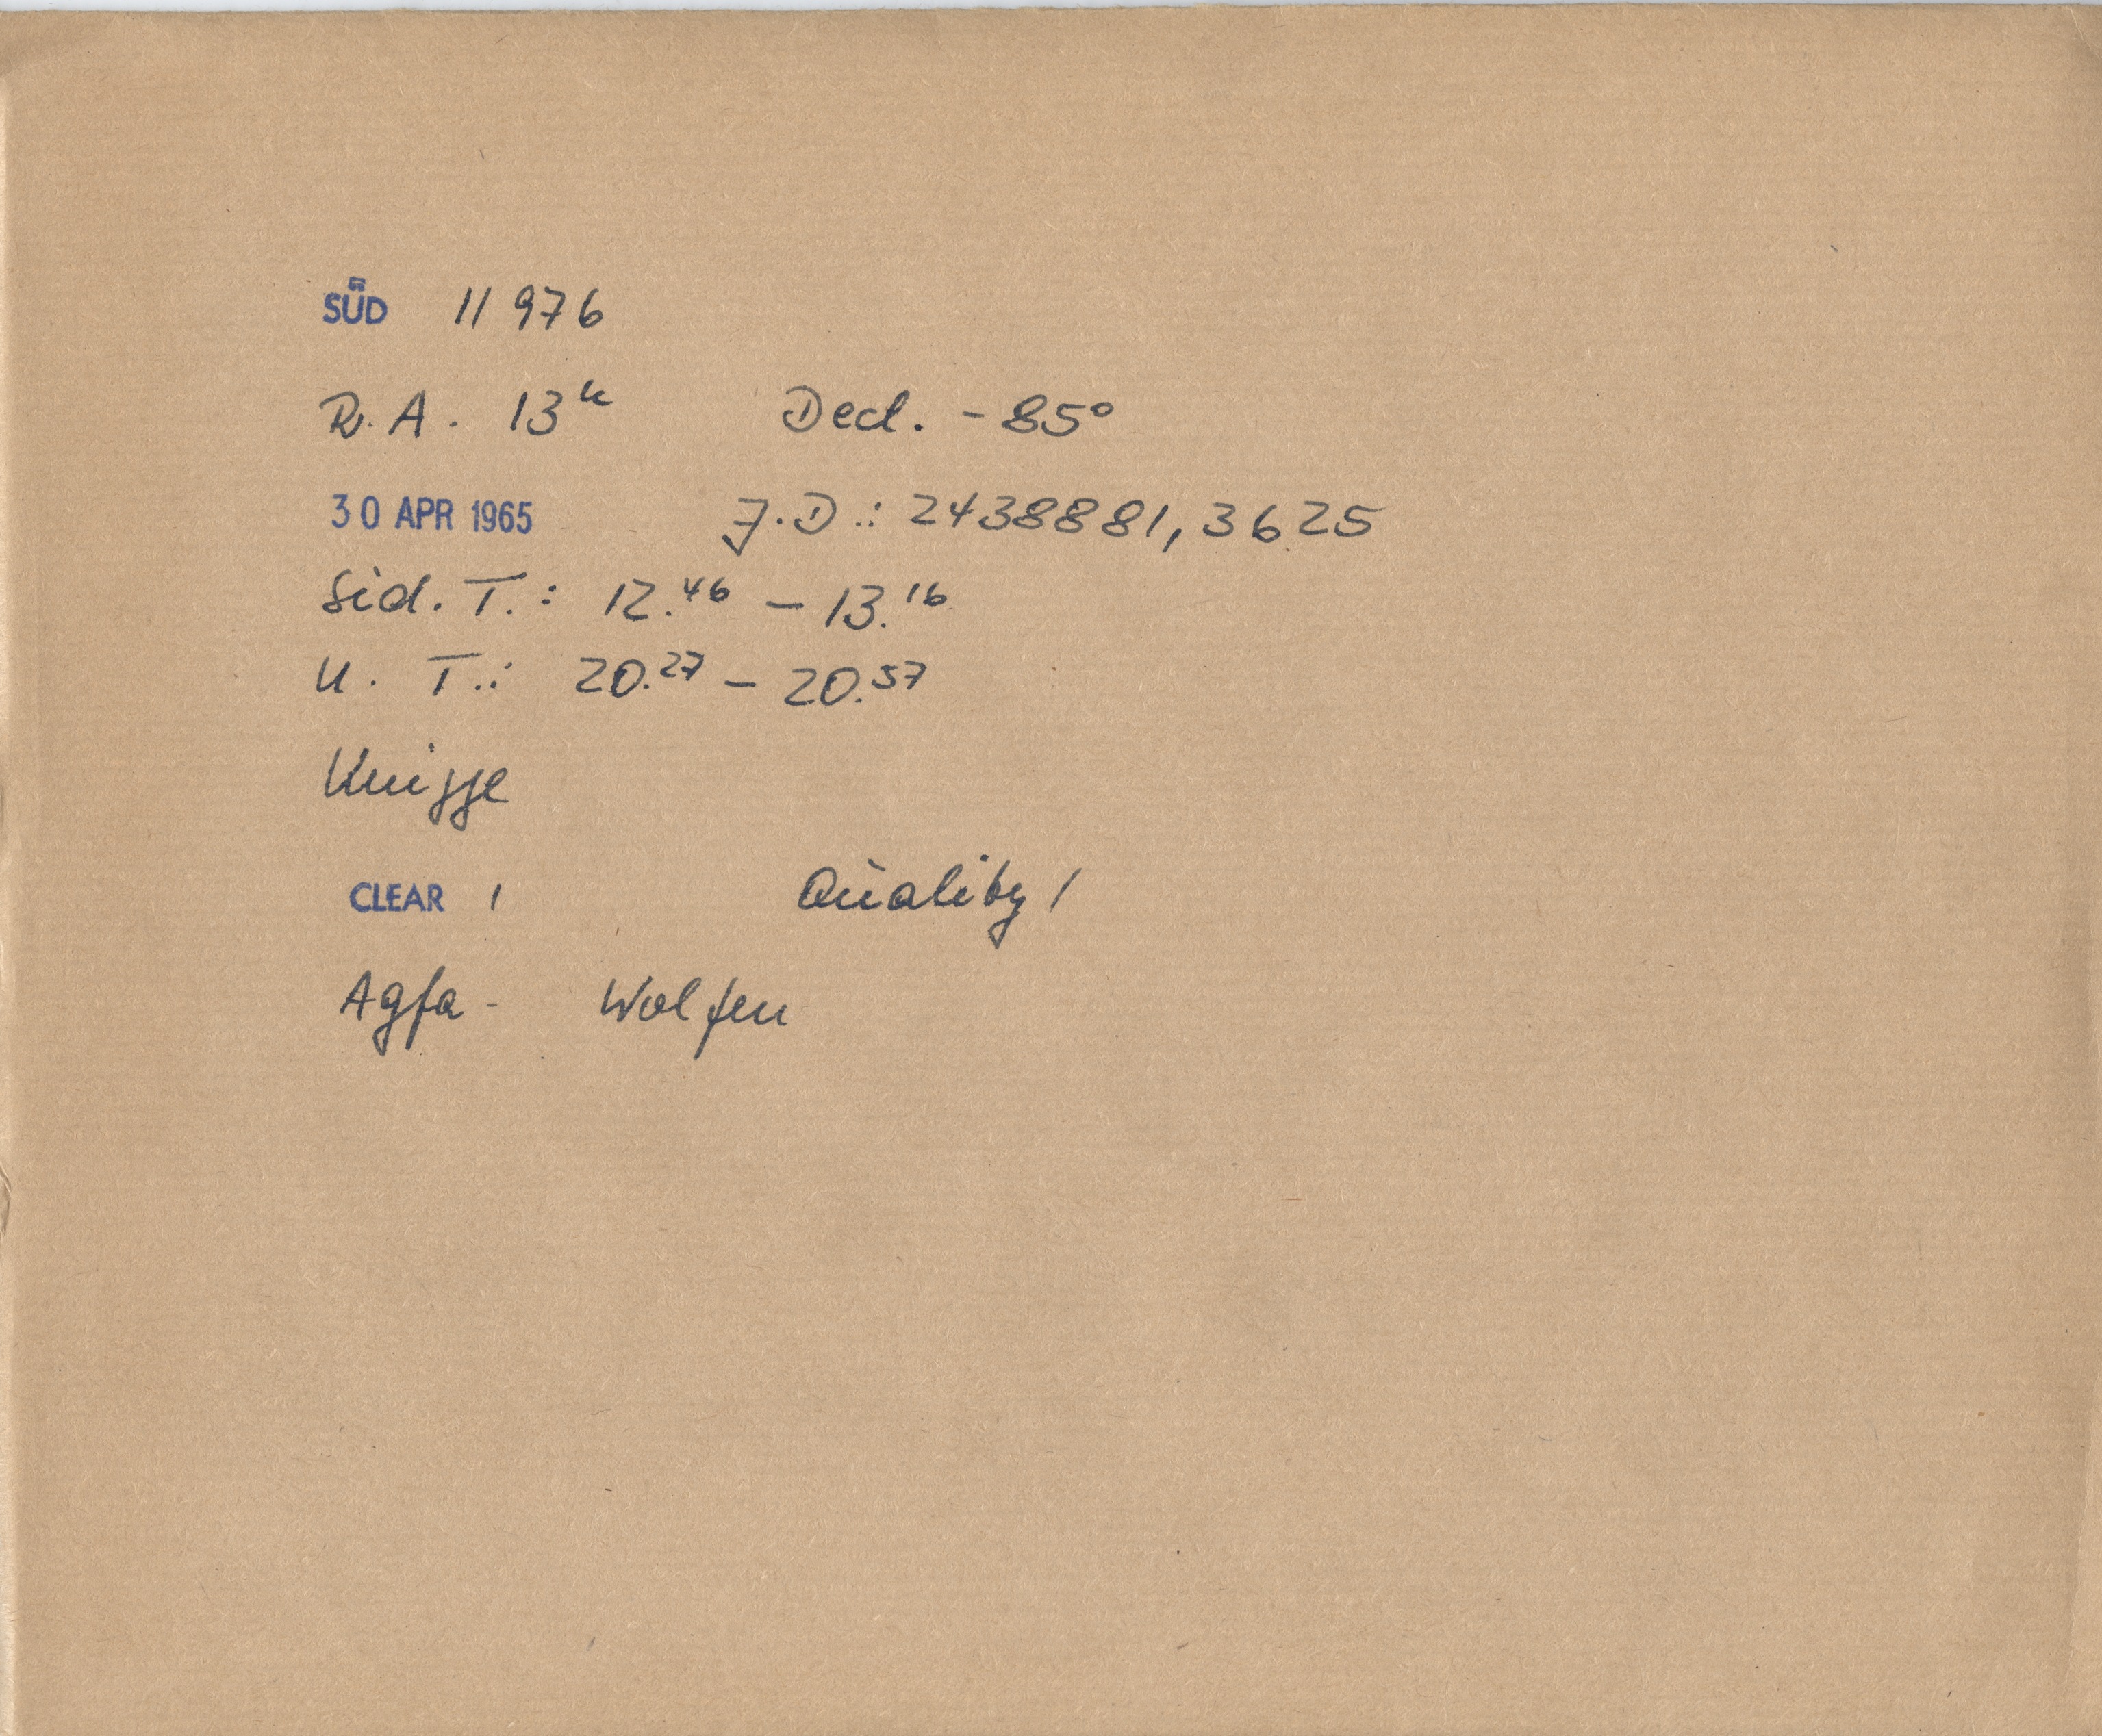 SÜD 11 976
R.A. 13h Decl. -85°
30 APR 1965 J.D.: 2438881,3625
Sid. T.: 12.46 – 13.16
U. T.: 20.27 – 20.57
Knigge
CLEAR 1 Quality 1
Agfa - Wolfen